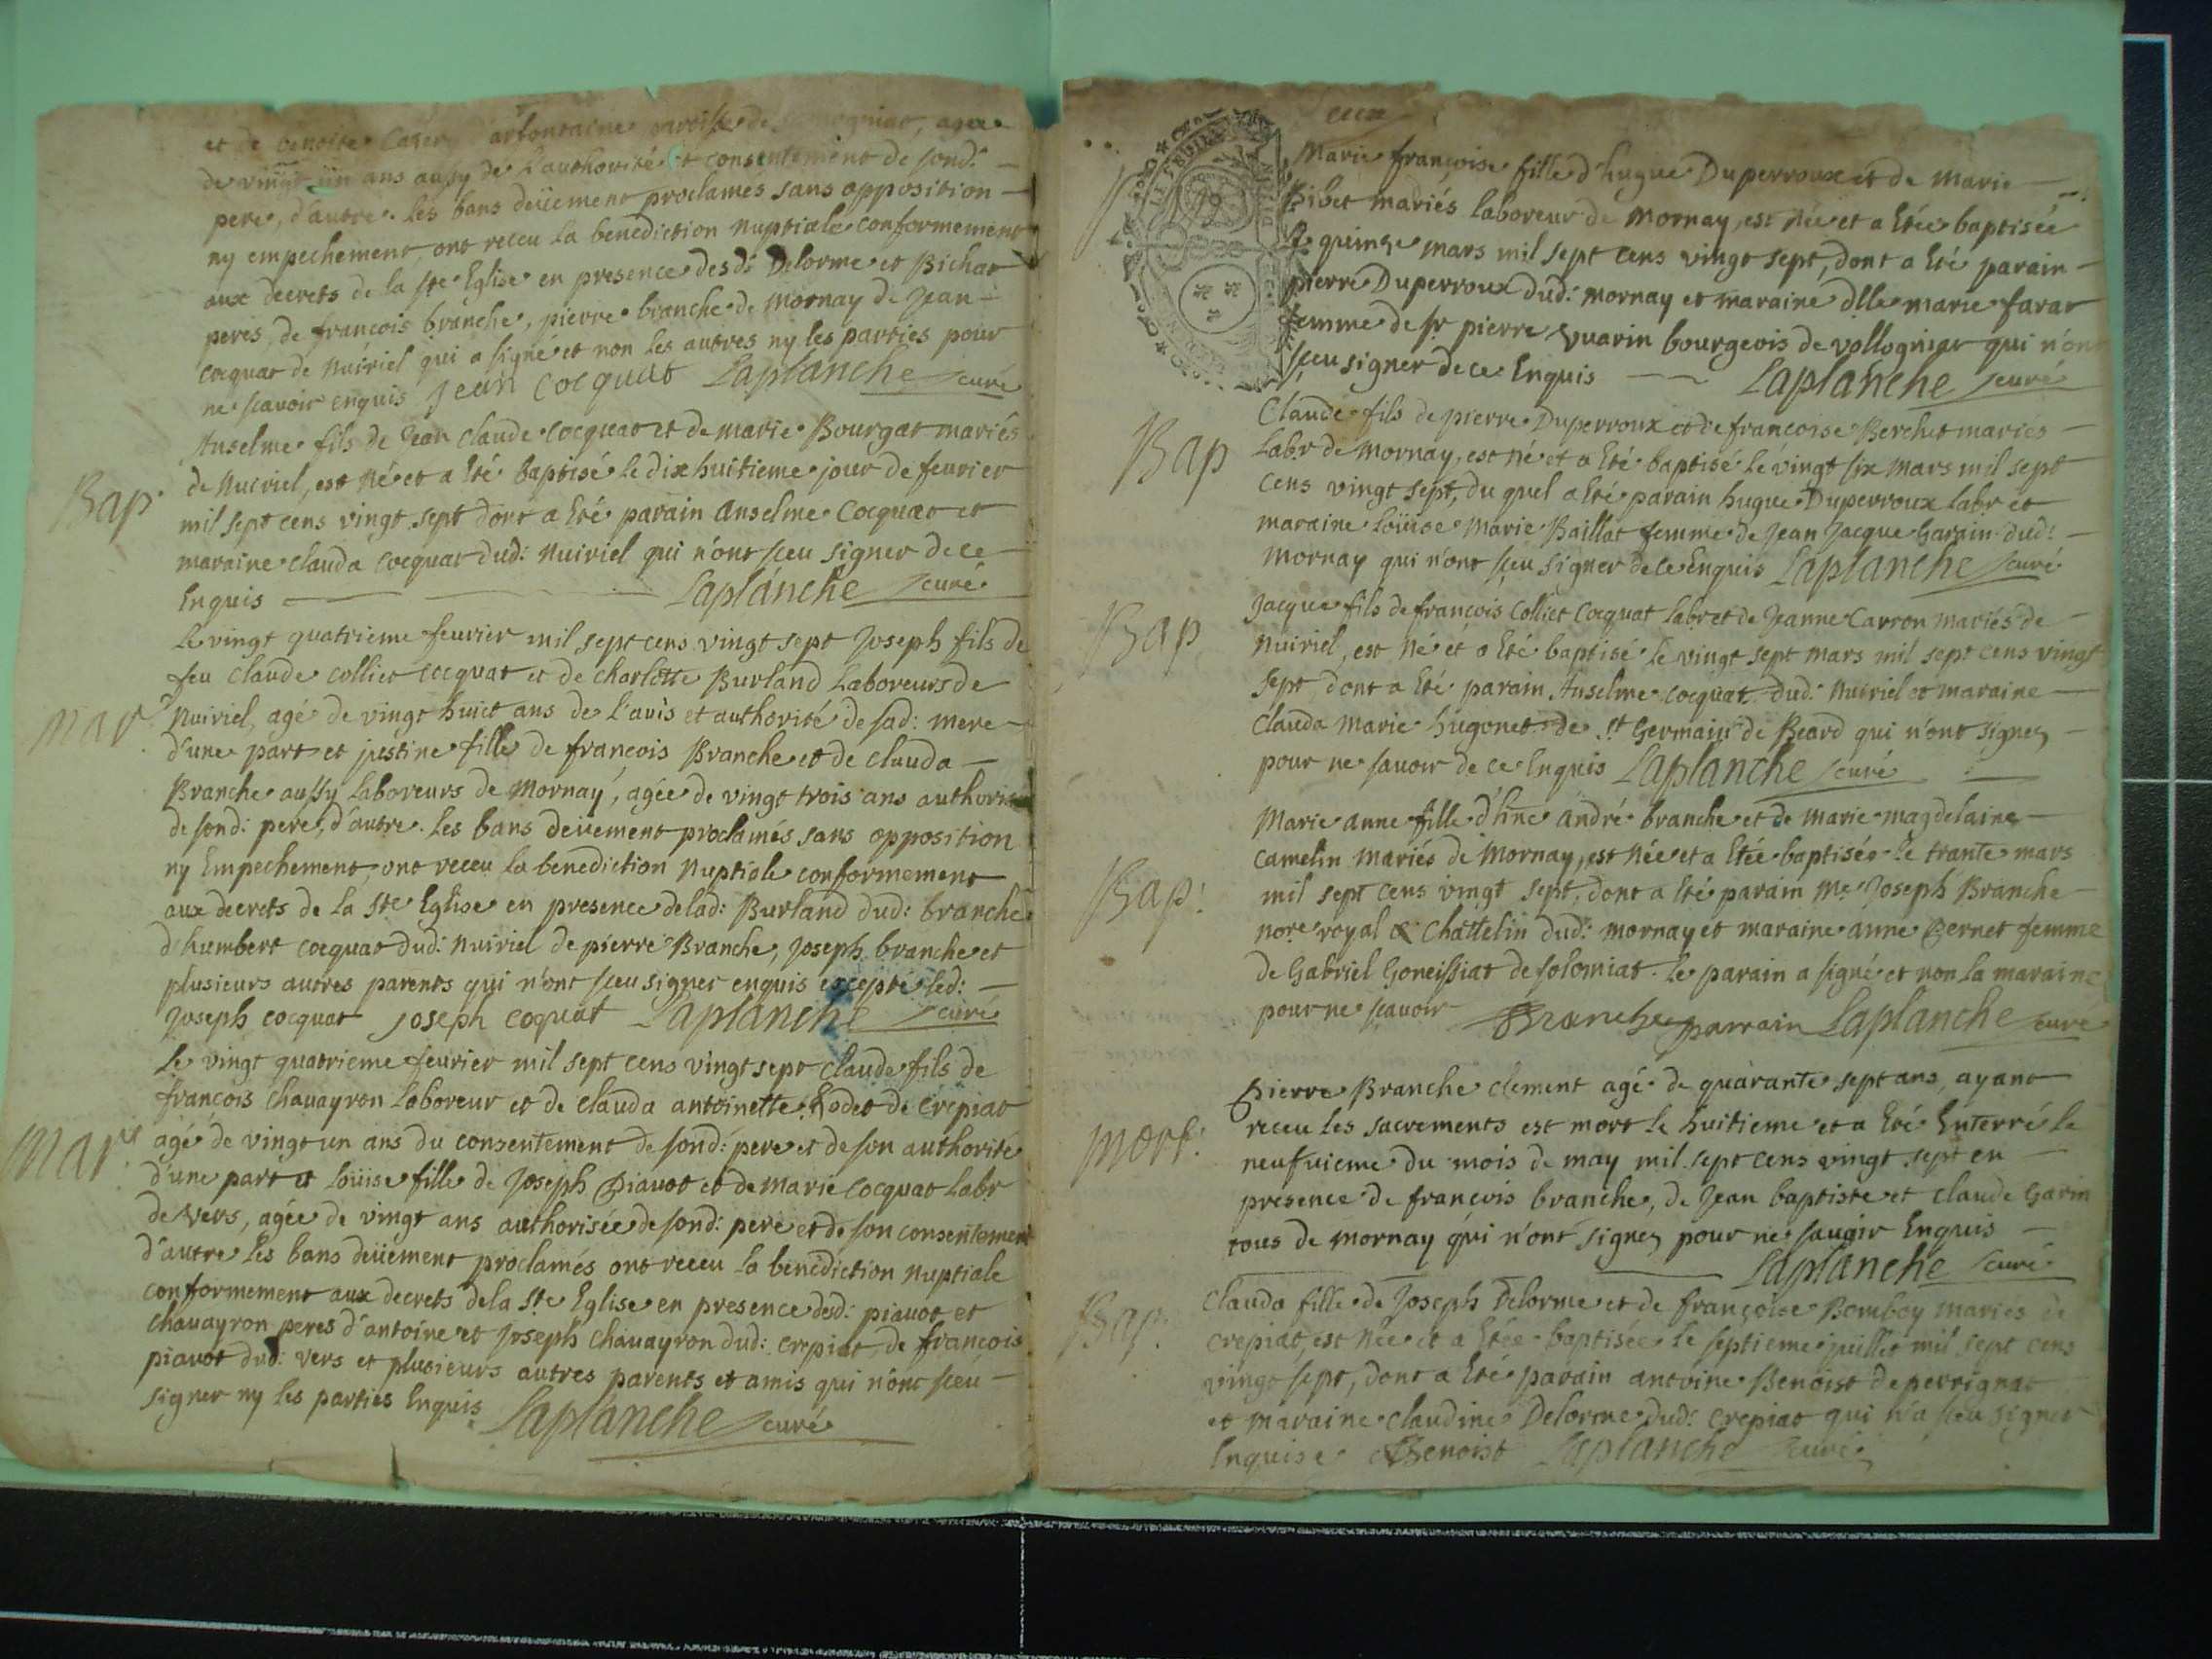 et de benoite arfontaine paroisse de agée
de vingt un ans aussy de l'authorité et consentement de sond:
pere, d'autre. les bans deüement proclamés sans opposition
ny empechement, ont receu la benediction nuptiale conformement
aux decrets de la ste Eglise en presence desd: Delorme et Bichat
peres, de françois branche, pierre branche de Mornay de Jean
cocquat de Nuiriel qui a signé et non les autres ny les parties pour
ne scavoir enquis Jean Cocquat Laplanche curé
Bap.
Anselme fils de Jean Claude Cocquat et de Marie Bourgat mariés
de Nuiriel, est Né et a Eté Baptisé le dix huitieme jour de feurier
mil sept cens vingt sept dont a Eté parain Anselme Cocquat et
maraine clauda cocquat dud: Nuiriel qui n'ont sceu signer de ce
Enquis Laplanche curé
Mar.
Le vingt quatrieme feurier mil sept cens vingt sept Joseph fils de
feu Claude colliet cocquat et de charlotte Burland Laboreurs de
Nuiriel, agé de vingt huict ans de l'auis et authorité de sad: mere
d'une part et justine fille de françois Branche et de clauda
Branche aussy Laboreurs de Mornay, agée de vingt trois ans authoris
de sond: pere, d'autre. les bans deüement proclamés sans opposition
ny Empechement, ont receu la benediction Nuptiale conformement
aux decrets de la Ste Eglise en presence de lad: Burland dud: branche
d'humbert cocquat dud: nuiriel de pierre Branche, Joseph branche et
plusieurs autres parents qui n'ont sceu signer enquis excepté led:
Joseph cocquat Joseph coquat Laplanche curé
Mar.
Le vingt quatrieme feurier mil sept cens vingt sept claude fils de
francois chauayron Laboreur et de clauda antoinette Rodet de crepiat
agé de vingt un ans du consentement de sond: pere et de son authorité
d'une part et Loüise fille de Joseph Piauot et de marie cocquat Labr
de Vers, agée de vingt ans authorisée de sond: pere et de son consentement
d'autre les bans deüement proclamés ont receu la benediction nuptiale
conformement aux decrets de la Ste Eglise en presence desd: piauot et
chauayron peres d'antoine et Joseph chauayron dud: crepiat, de francois
piauot dud: vers et plusieurs autres parents et amis qui n'ont sceu
signer ny les parties Enquis Laplanche curé
Marie françoise fille d'hugue Duperroux et de Marie
Bibet mariés laboreur de Mornay, est Née et a Etée baptisée
le quinze mars mil sept cens vingt sept, dont a Eté parain
pierre Duperroux dud: mornay et maraine dlle marie farat
femme de sr pierre Vuarin bourgeois de vollogniat qui n'ont
sceu signer de ce Enquis Laplanche curé
Bap
Claude fils de pierre Duperroux et de francoise Berchet mariés
Labr de Mornay, est né et a Eté baptisé le vingt six mars mil sept
cens vingt sept, du quel a Eté parain hugue Duperroux labr et
maraine Loüise Marie Baillat femme de Jean Jacque Garain dud:
Mornay qui n'ont sceu signer de ce Enquis Laplanche curé
Bap
Jacque fils de françois Colliet Cocquat labr et de Jeanne Carron mariés de
Nuiriel, est Né et a Eté baptisé le vingt sept mars mil sept cens vingt
sept, dont a Eté parain Anselme cocquat dud: Nuiriel et maraine
Clauda Marie hugonet de St Germain de Beard qui n'ont signez
pour ne sauoir de ce Enquis Laplanche curé
Bap:
Marie anne fille d'hne andré branche et de Marie magdelaine
camelin mariés de Mornay, est Née et a Etée baptisée le trante mars
mil sept cens vingt sept, dont a Eté parain Me Joseph Branche
nore royal & Chattelin dud: mornay et maraine anne Bernet femme
de Gabriel Goneissiat de solomiat. le parain a signé et non la maraine
pour ne scavoir Branche parrain Laplanche curé
Mort:
Pierre Branche clement agé de quarante sept ans, ayant
receu les sacrements est mort le huitieme et a Eté Enterré le
neufuieme du mois de may mil sept cens vingt sept en
presence de françois branche, de Jean baptiste et claude Garin
tous de Mornay qui n'ont signez pour ne sauoir Enquis
Laplanche curé
Bap:
Clauda fille de Joseph Delorme et de françoise Bomboy mariés de
crepiat, est Née et a Etée baptisée le septieme juillet mil sept cens
vingt sept, dont a Eté parain antoine Benoist de perrignat
et maraine claudine Delorme dud: crepiat qui n'a sceu signer
Enquise Benoist Laplanche curé